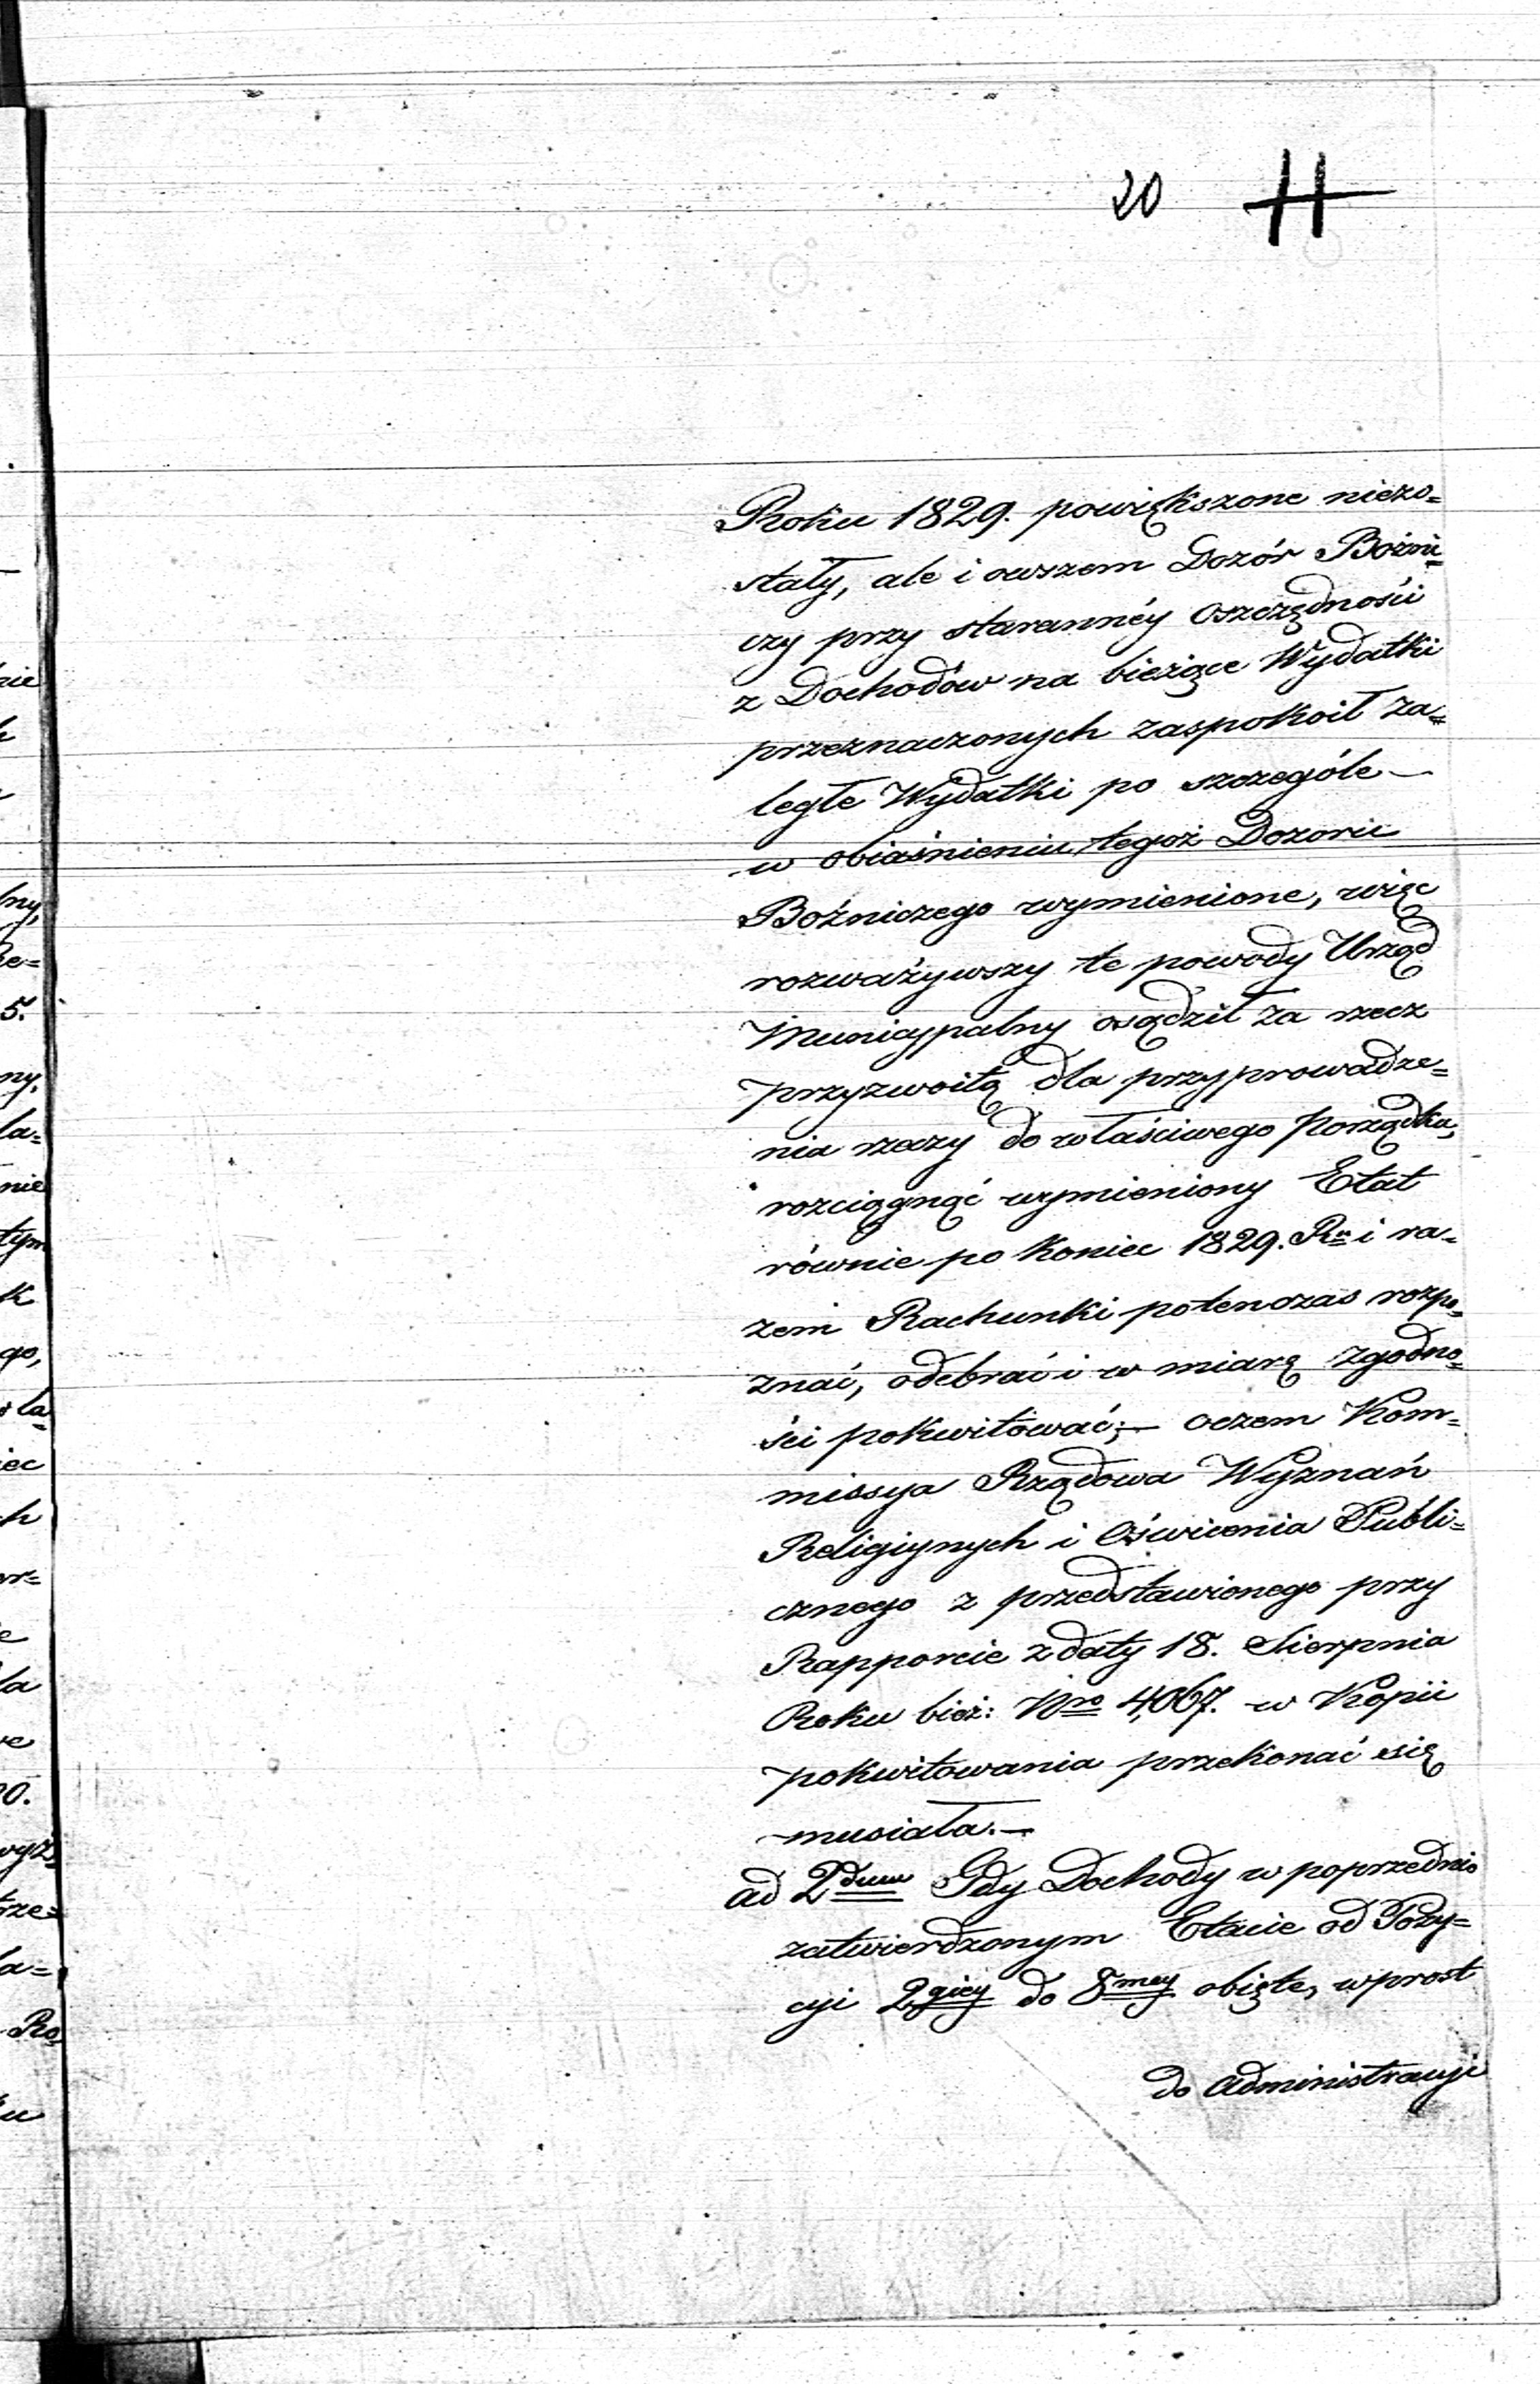 20 11
Roku 1829. powiększone niezo=
stały, ale i owszem Dozór Bożni=
czy przy starannéy oszczędności
z Dochodów na bieżące Wydatki
przeznaczonych zaspokoił za=
ległe Wydatki po szczególe —
w obiaśnieniu tegoż Dozoru
Bożniczego wymienione, więc
rozważywszy te powody Urząd
Municypalny osądził za rzecz
przyzwoitą dla przyprowadze=
nia rzeczy do właściwego porządku,
rozciągnąć wymieniony Etat
równie po koniec 1829. Ru i ra=
zem Rachunki potenczas rozpo=
znać, odebrać i w miarę zgodno=
ści pokwitować; — oczem Kom=
missya Rządowa Wyznań
Religiynych i Oświcenia Publi=
cznego z przedstawionego przy
Rapporcie z daty 18. Sierpnia
Roku bież: Nro 4,067. w Kopii
pokwitowania przekonać się
musiała. —
ad 2dum Gdy Dochody w poprzednio
zatwierdzonym Etacie od Pozy=
cyi 2giey do 8mey obięte, wprost
do administracyi
nie
ny,
5.
ny,
la=
nie
tym
k
go,
iec
h
la
0.
la=
Ro=